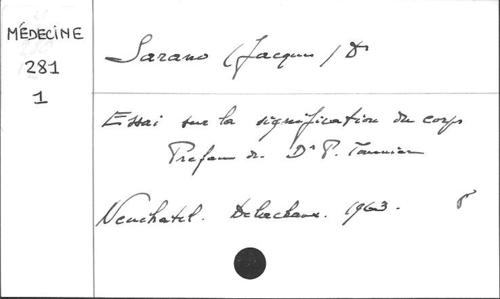 MÉDECINE
281
1
Sarano (Jacques) Dr
Essai sur la signification du corps
Préface de Dr P. Tournier
Neuchatel. Delachaux. 1963.